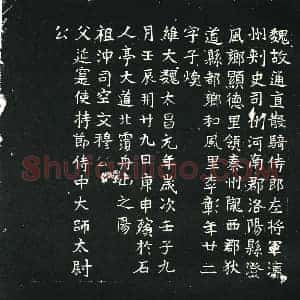 魏故通直散騎侍郎左將軍瀛
州刺史司州河南郡洛陽縣澄
風鄉顯德里領秦州隴西郡狄
道縣都鄉和風里李彰年廿二
字子煥
維大魏太昌元年歲次壬子九
月壬辰朔廿九日庚申殯於石
人亭大道北覆舟山之陽
祖沖司空文穆公
父延寔使持節侍中大師太尉
公